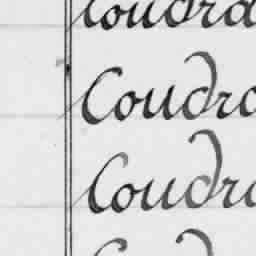 Coudra
Coudra
Coudra